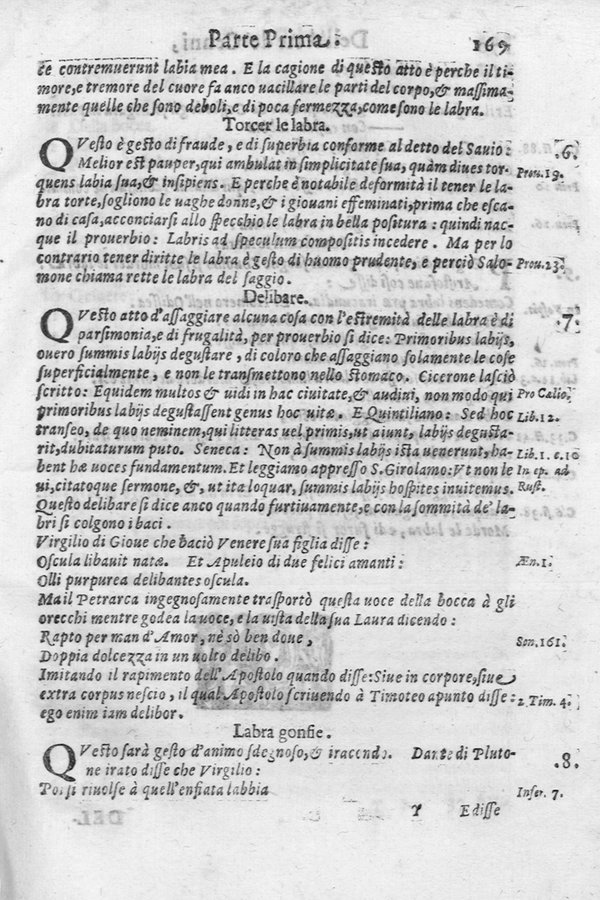 Parte Prima. 169
ce contremuerunt labia mea. E la cagione di questo atto è perche il ti-
more, e tremore del cuore fa anco uacillare le parti del corpo, & massima-
mente quelle che sono deboli, e di poca fermezza, come sono le labra.
Torcer le labra.
QVesto è gesto di fraude, e di superbia conforme al detto del Sauio: .6.
Melior est pauper, qui ambulat in simplicitate sua, quàm diues tor- Prou. 19.
quens labia sua, & insipiens. E perche è notabile deformità il tener le la-
bra torte, sogliono le uaghe donne, & i giouani effeminati, prima che esca-
no di casa, acconciarsi allo specchio le labra in bella positura: quindi nac-
que il prouerbio: Labris ad speculum compositis incedere. Ma per lo
contrario tener diritte le labra è gesto di huomo prudente, e perciò Salo- Prou. 23.
mone chiama rette le labra del saggio.
Delibare.
QVesto atto d'assaggiare alcuna cosa con l'estremità delle labra è di .7.
parsimonia, e di frugalità, per prouerbio si dice: Primoribus labijs,
ouero summis labijs degustare, di coloro che assaggiano solamente le cose
superficialmente, e non le transmettono nello stomaco. Cicerone lasciò
scritto: Equidem multos & uidi in hac ciuitate, & audini, non modo qui Pro Cælio.
primoribus labijs degustassent genus hoc uitæ. E Quintiliano: Sed hoc Lib. 12.
transeo, de quo neminem, qui litteras uel primis, ut aiunt, labijs degusta-
rit, dubitaturum puto. Seneca: Non à summis labijs ista uenerunt, ha- Lib. 1. e. 10
bent hæ uoces fundamentum. Et leggiamo appresso S. Girolamo: Vt non le In ep. ad
ui, citatoque sermone, &, ut ita loquar, summis labijs hospites inuitemus. Rust.
Questo delibare si dice anco quando furtiuamente, e con la sommità de' la-
bri si colgono i baci.
Virgilio di Gioue che baciò Venere sua figlia disse:
Oscula libauit natæ. Et Apuleio di due felici amanti: Æn. 1.
Olli purpurea delibantes oscula.
Ma il Petrarca ingegnosamente trasportò questa uoce della bocca à gli
orecchi mentre godea la uoce, e la uista della sua Laura dicendo:
Rapto per man d'Amor, nè sò ben doue, Son. 161.
Doppia dolcezza in un uolto delibo.
Imitando il rapimento dell'Apostolo quando disse: Siue in corpore, siue
extra corpus nescio, il qual Apostolo scriuendo à Timoteo apunto disse: 2 Tim. 4.
ego enim iam delibor.
Labra gonfie.
QVesto sarà gesto d'animo sdegnoso, & iracondo. Dante di Pluto- .8.
ne irato disse che Virgilio:
Poi si riuolse à quell'enfiata labbia Infer. 7.
Y E disse